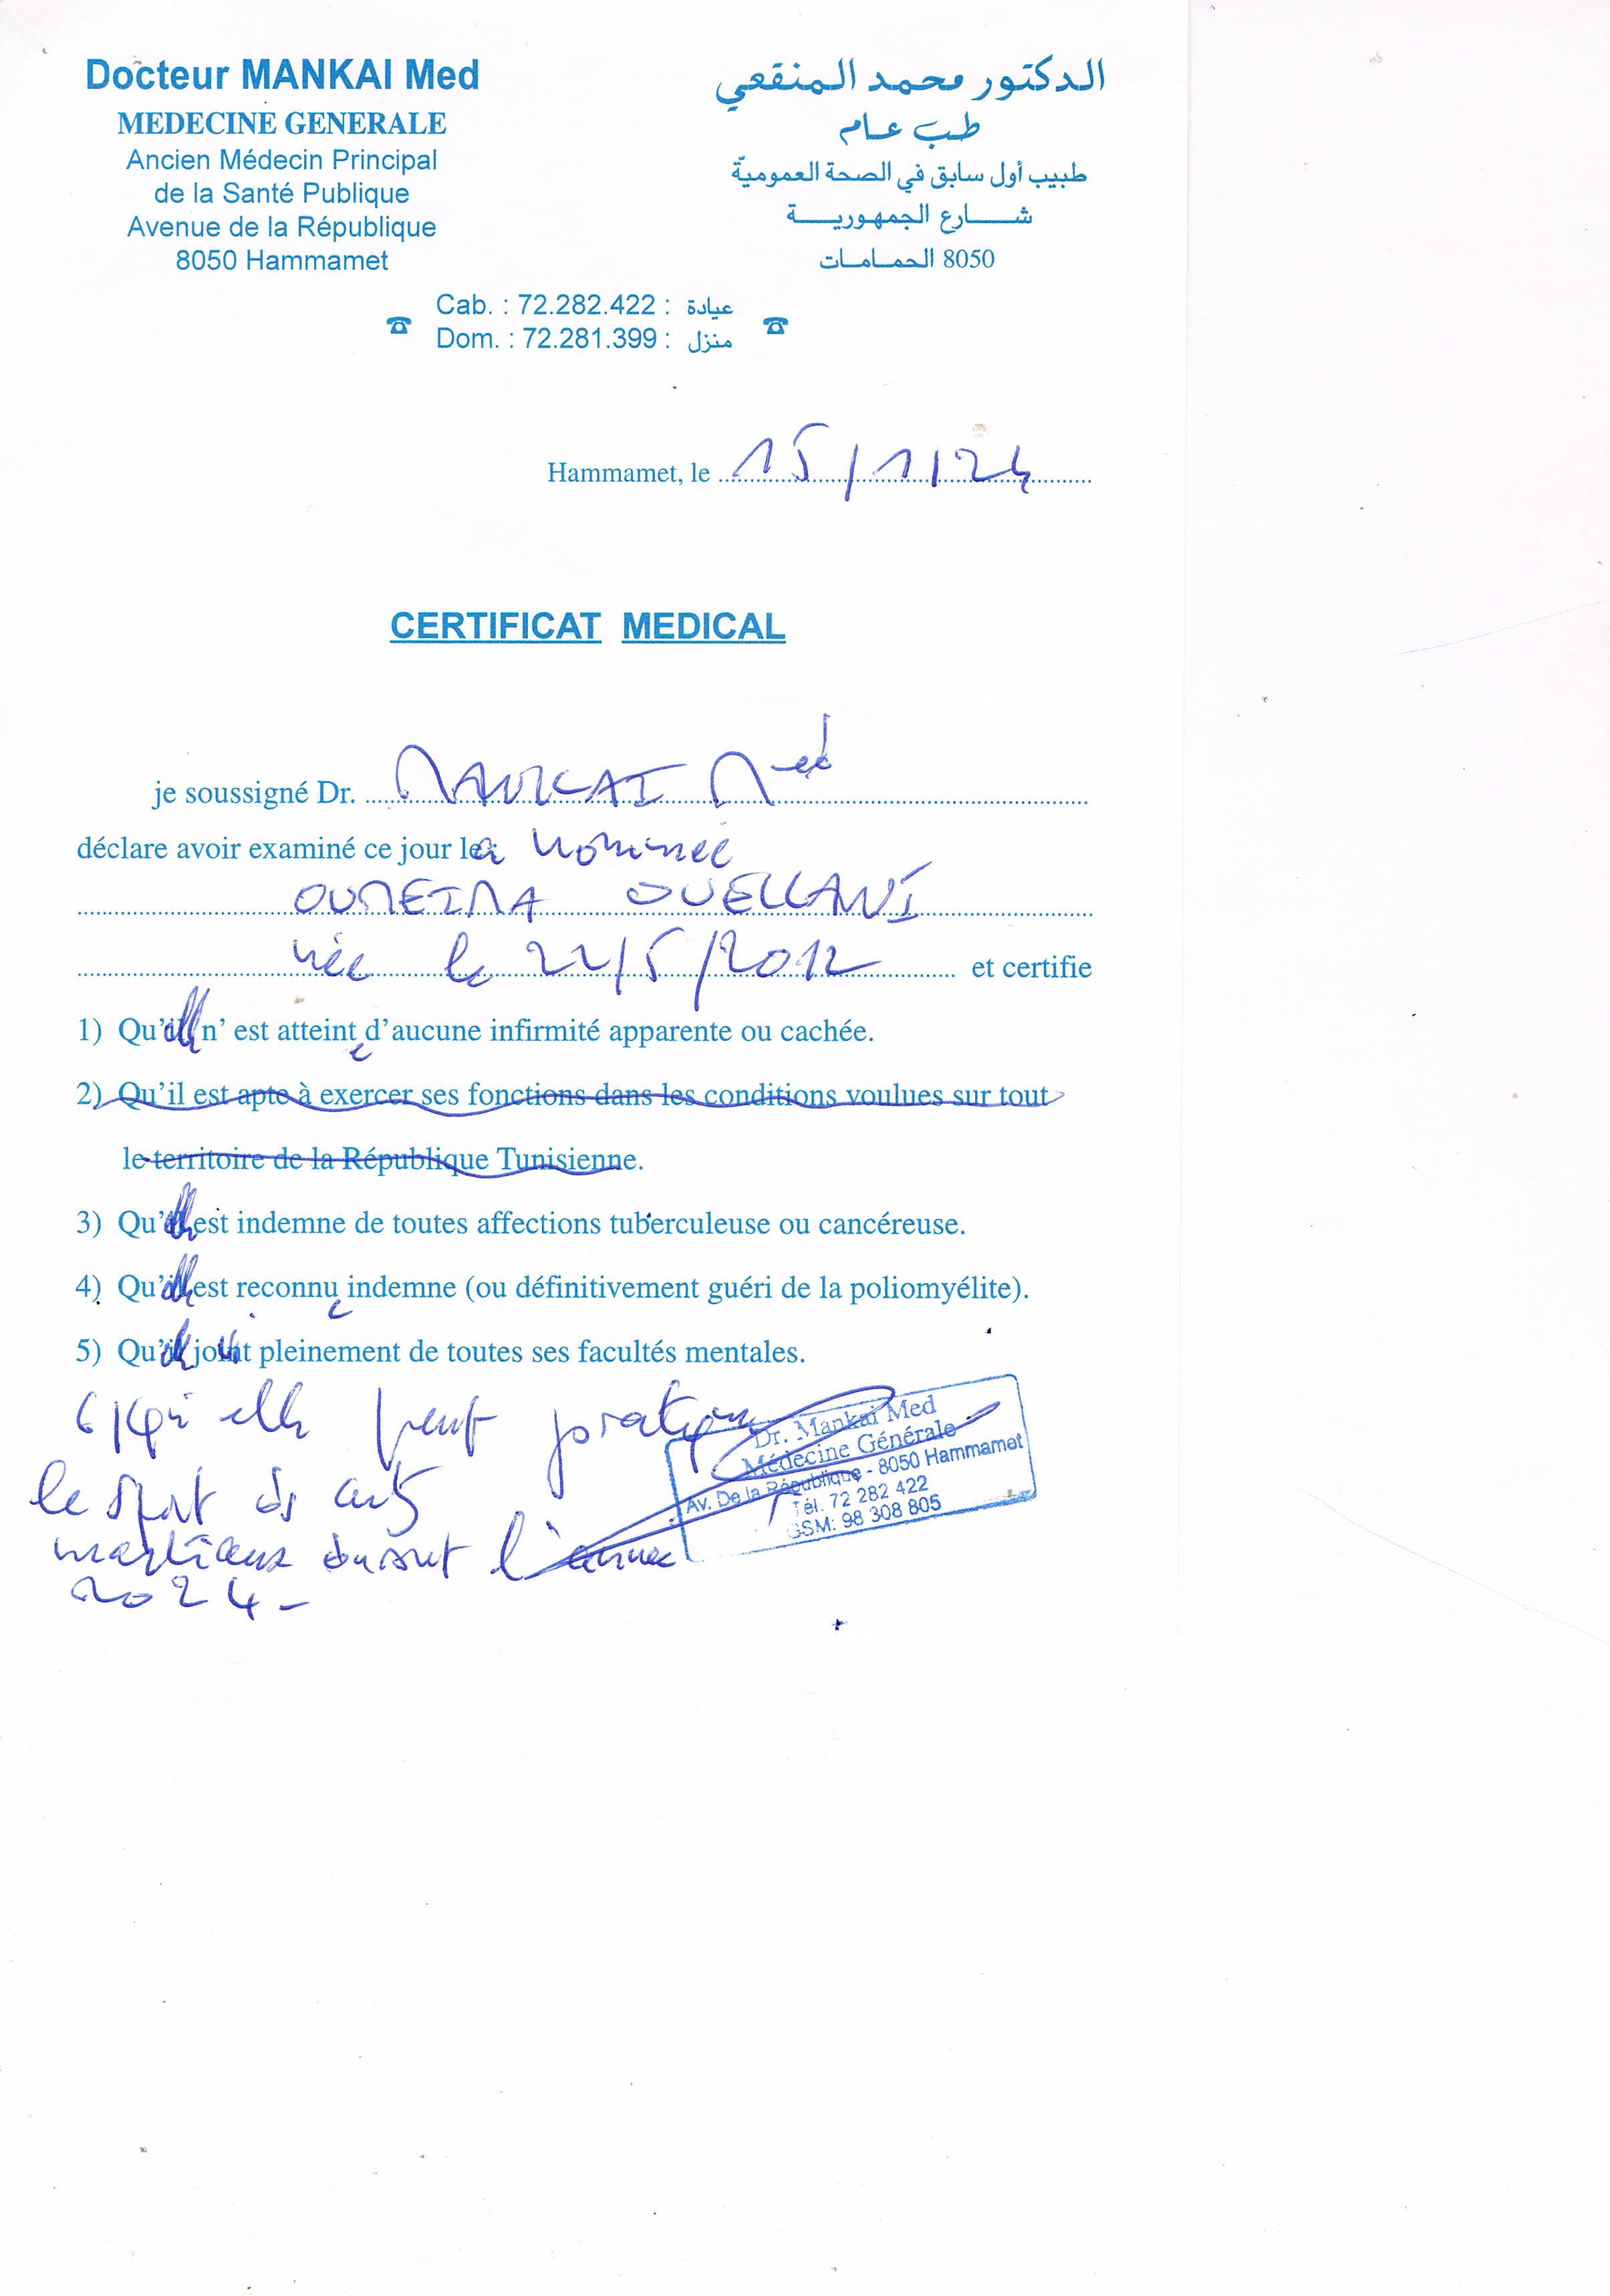 Docteur MANKAI Med
MEDECINE GENERALE
Ancien Médecin Principal
de la Santé Publique
Avenue de la République
8050 Hammamet
الدكتور محمد المنقعي
طب عام
طبيب أول سابق في الصحة العمومية
شارع الجمهورية
8050 الحمامات
Cab. : 72.282.422 : عيادة
Dom. : 72.281.399 : منزل
Hammamet, le 15/1/24
CERTIFICAT MEDICAL
je soussigné Dr. MANKAI Med
déclare avoir examiné ce jour la nommée
OUMEIMA OUELLANI
née le 22/5/2012 et certifie
1) Qu'elle n' est atteinte d'aucune infirmité apparente ou cachée.
2) Qu'il est apte à exercer ses fonctions dans les conditions voulues sur tout
le territoire de la République Tunisienne.
3) Qu'elle est indemne de toutes affections tuberculeuse ou cancéreuse.
4) Qu'elle est reconnue indemne (ou définitivement guéri de la poliomyélite).
5) Qu'elle jouit pleinement de toutes ses facultés mentales.
6) qu'elle peut pratiquer
le sport ds arts
martiaux durant l'année
2024-
Dr. Mankai Med
Médecine Générale
Av. De la République - 8050 Hammamet
Tél. 72 282 422
GSM: 98 308 805